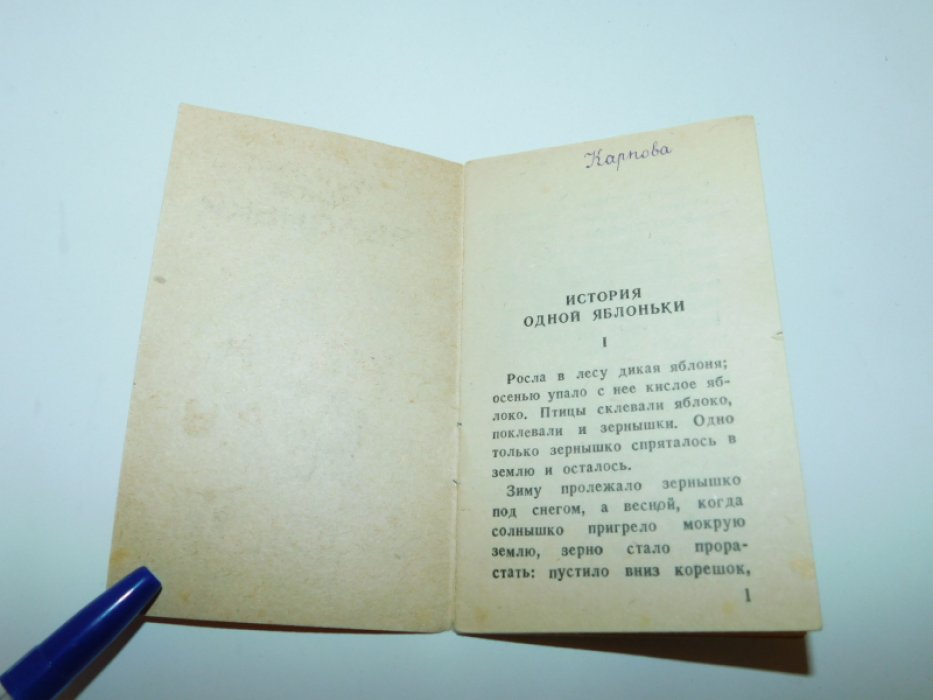 Карпова
ИСТОРИЯ
ОДНОЙ ЯБЛОНЬКИ
I
Росла в лесу дикая яблоня;
осенью упало с нее кислое яб-
локо. Птицы склевали яблоко,
поклевали и зернышки. Одно
только зернышко спряталось в
землю и осталось.
Зиму пролежало зернышко
под снегом, а весной, когда
солнышко пригрело мокрую
землю, зерно стало прора-
стать: пустило вниз корешок,
1